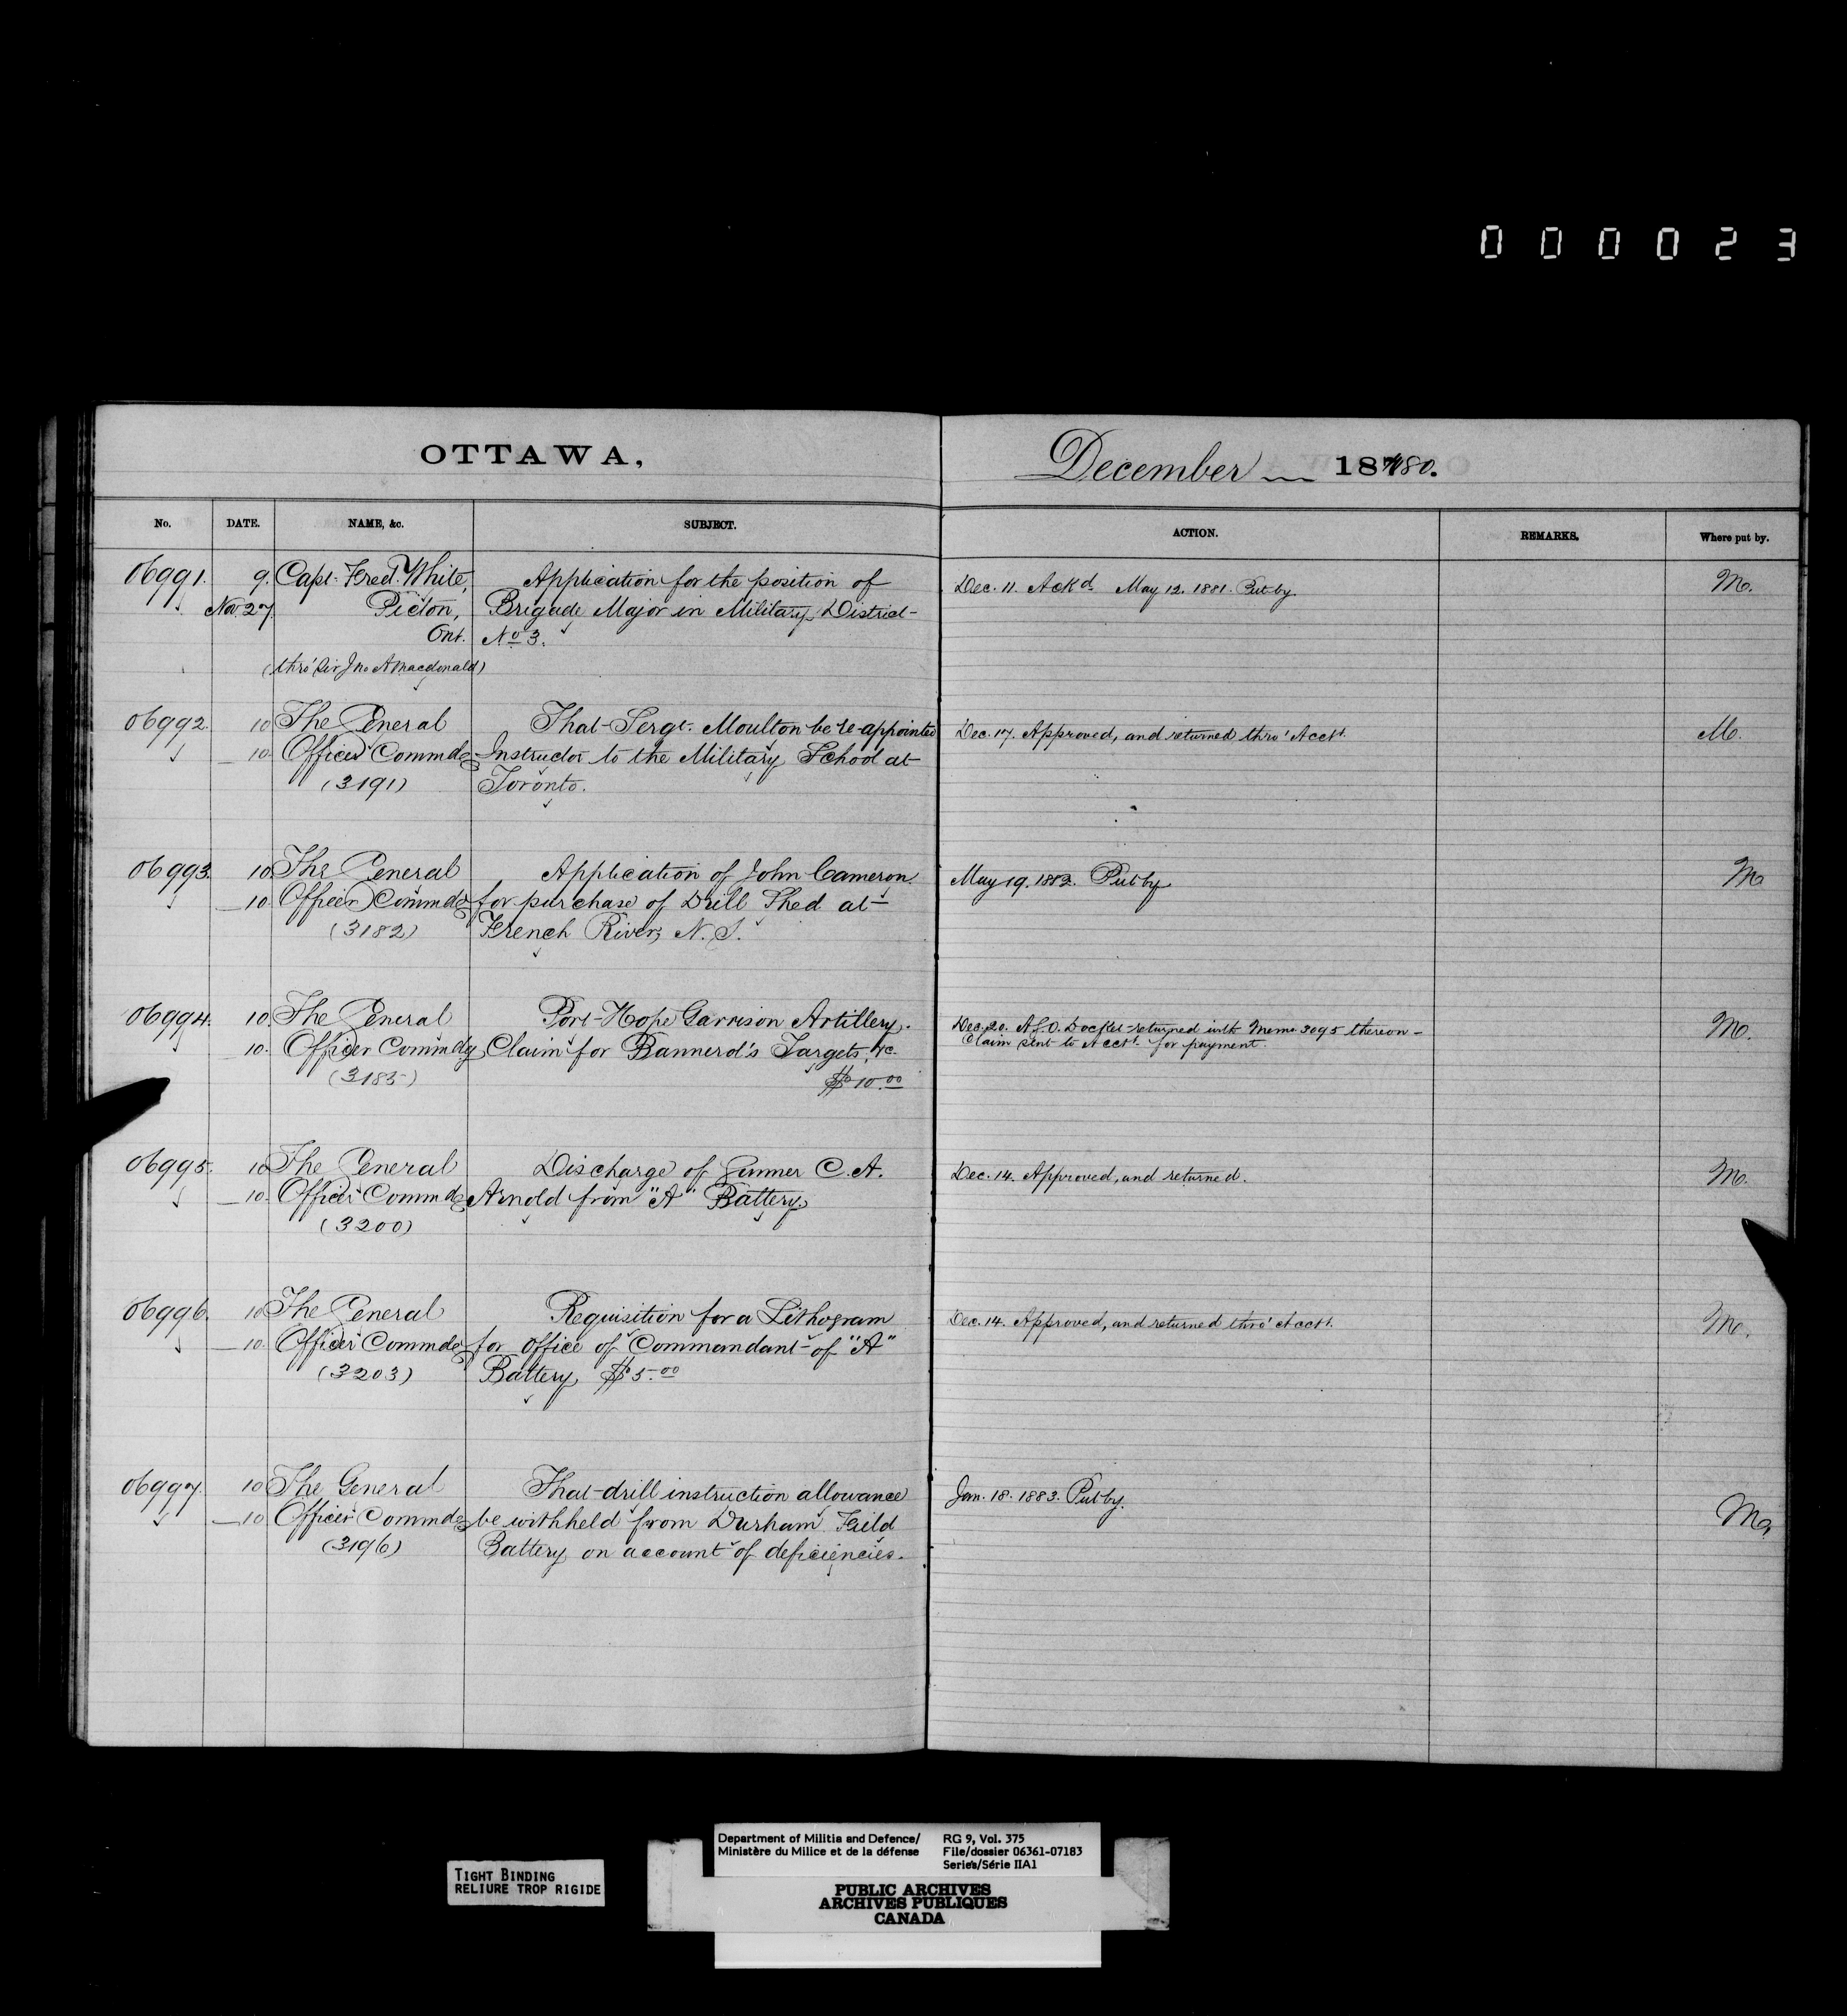 000023
OTTAWA,
December 1880.
No. DATE. NAME, &c. SUBJECT. ACTION. REMARKS. Where put by.
06991. 9. Capt. Fred. White, Application for the position of Dec. 11. Ack'd. May 12. 1881. Put by. M.
Nov. 27. Picton, Brigade Major in Military District
Ont. No 3.
(thro' Sir Jno A Macdonald)
06992. 10 The General That Sergt. Moulton be re-appointed Dec. 17. Approved, and returned thro' Acct. M.
10. Officer Commdg Instructor to the Military School at
(3191) Toronto.
06993. 10 The General Application of John Cameron May 19. 1882. Put by M
10. Officer Commdg for purchase of Drill Shed at
(3182) French River, N.S.
06994. 10. The General Port Hope Garrison Artillery. Dec. 20. A.G.O. Docket returned with Memo 3095 thereon –
10. Officer Commdg Claim for Bannerol's Targets, &c. Claim sent to Acct. for payment. M.
(3185) $10.00
06995. 10 The General Discharge of Gunner C.A. Dec. 14. Approved, and returned. M.
10. Officer Commdg Arnold from "A" Battery.
(3200)
06996. 10 The General Requisition for a Lithogram Dec. 14. Approved, and returned thro' Acct. M.
10. Officer Commdg for office of Commandant of "A"
(3203) Battery $5.00
06997. 10 The General That drill instruction allowance Jan. 18. 1883. Put by. M.
10 Officer Commdg be withheld from Durham Feild
(3196) Battery on account of deficiencies.
TIGHT BINDING
RELIURE TROP RIGIDE
Department of Militia and Defence/ RG 9, Vol. 375
Ministère du Milice et de la défense File/dossier 06361-07183
Series/Série IIA1
PUBLIC ARCHIVES
ARCHIVES PUBLIQUES
CANADA